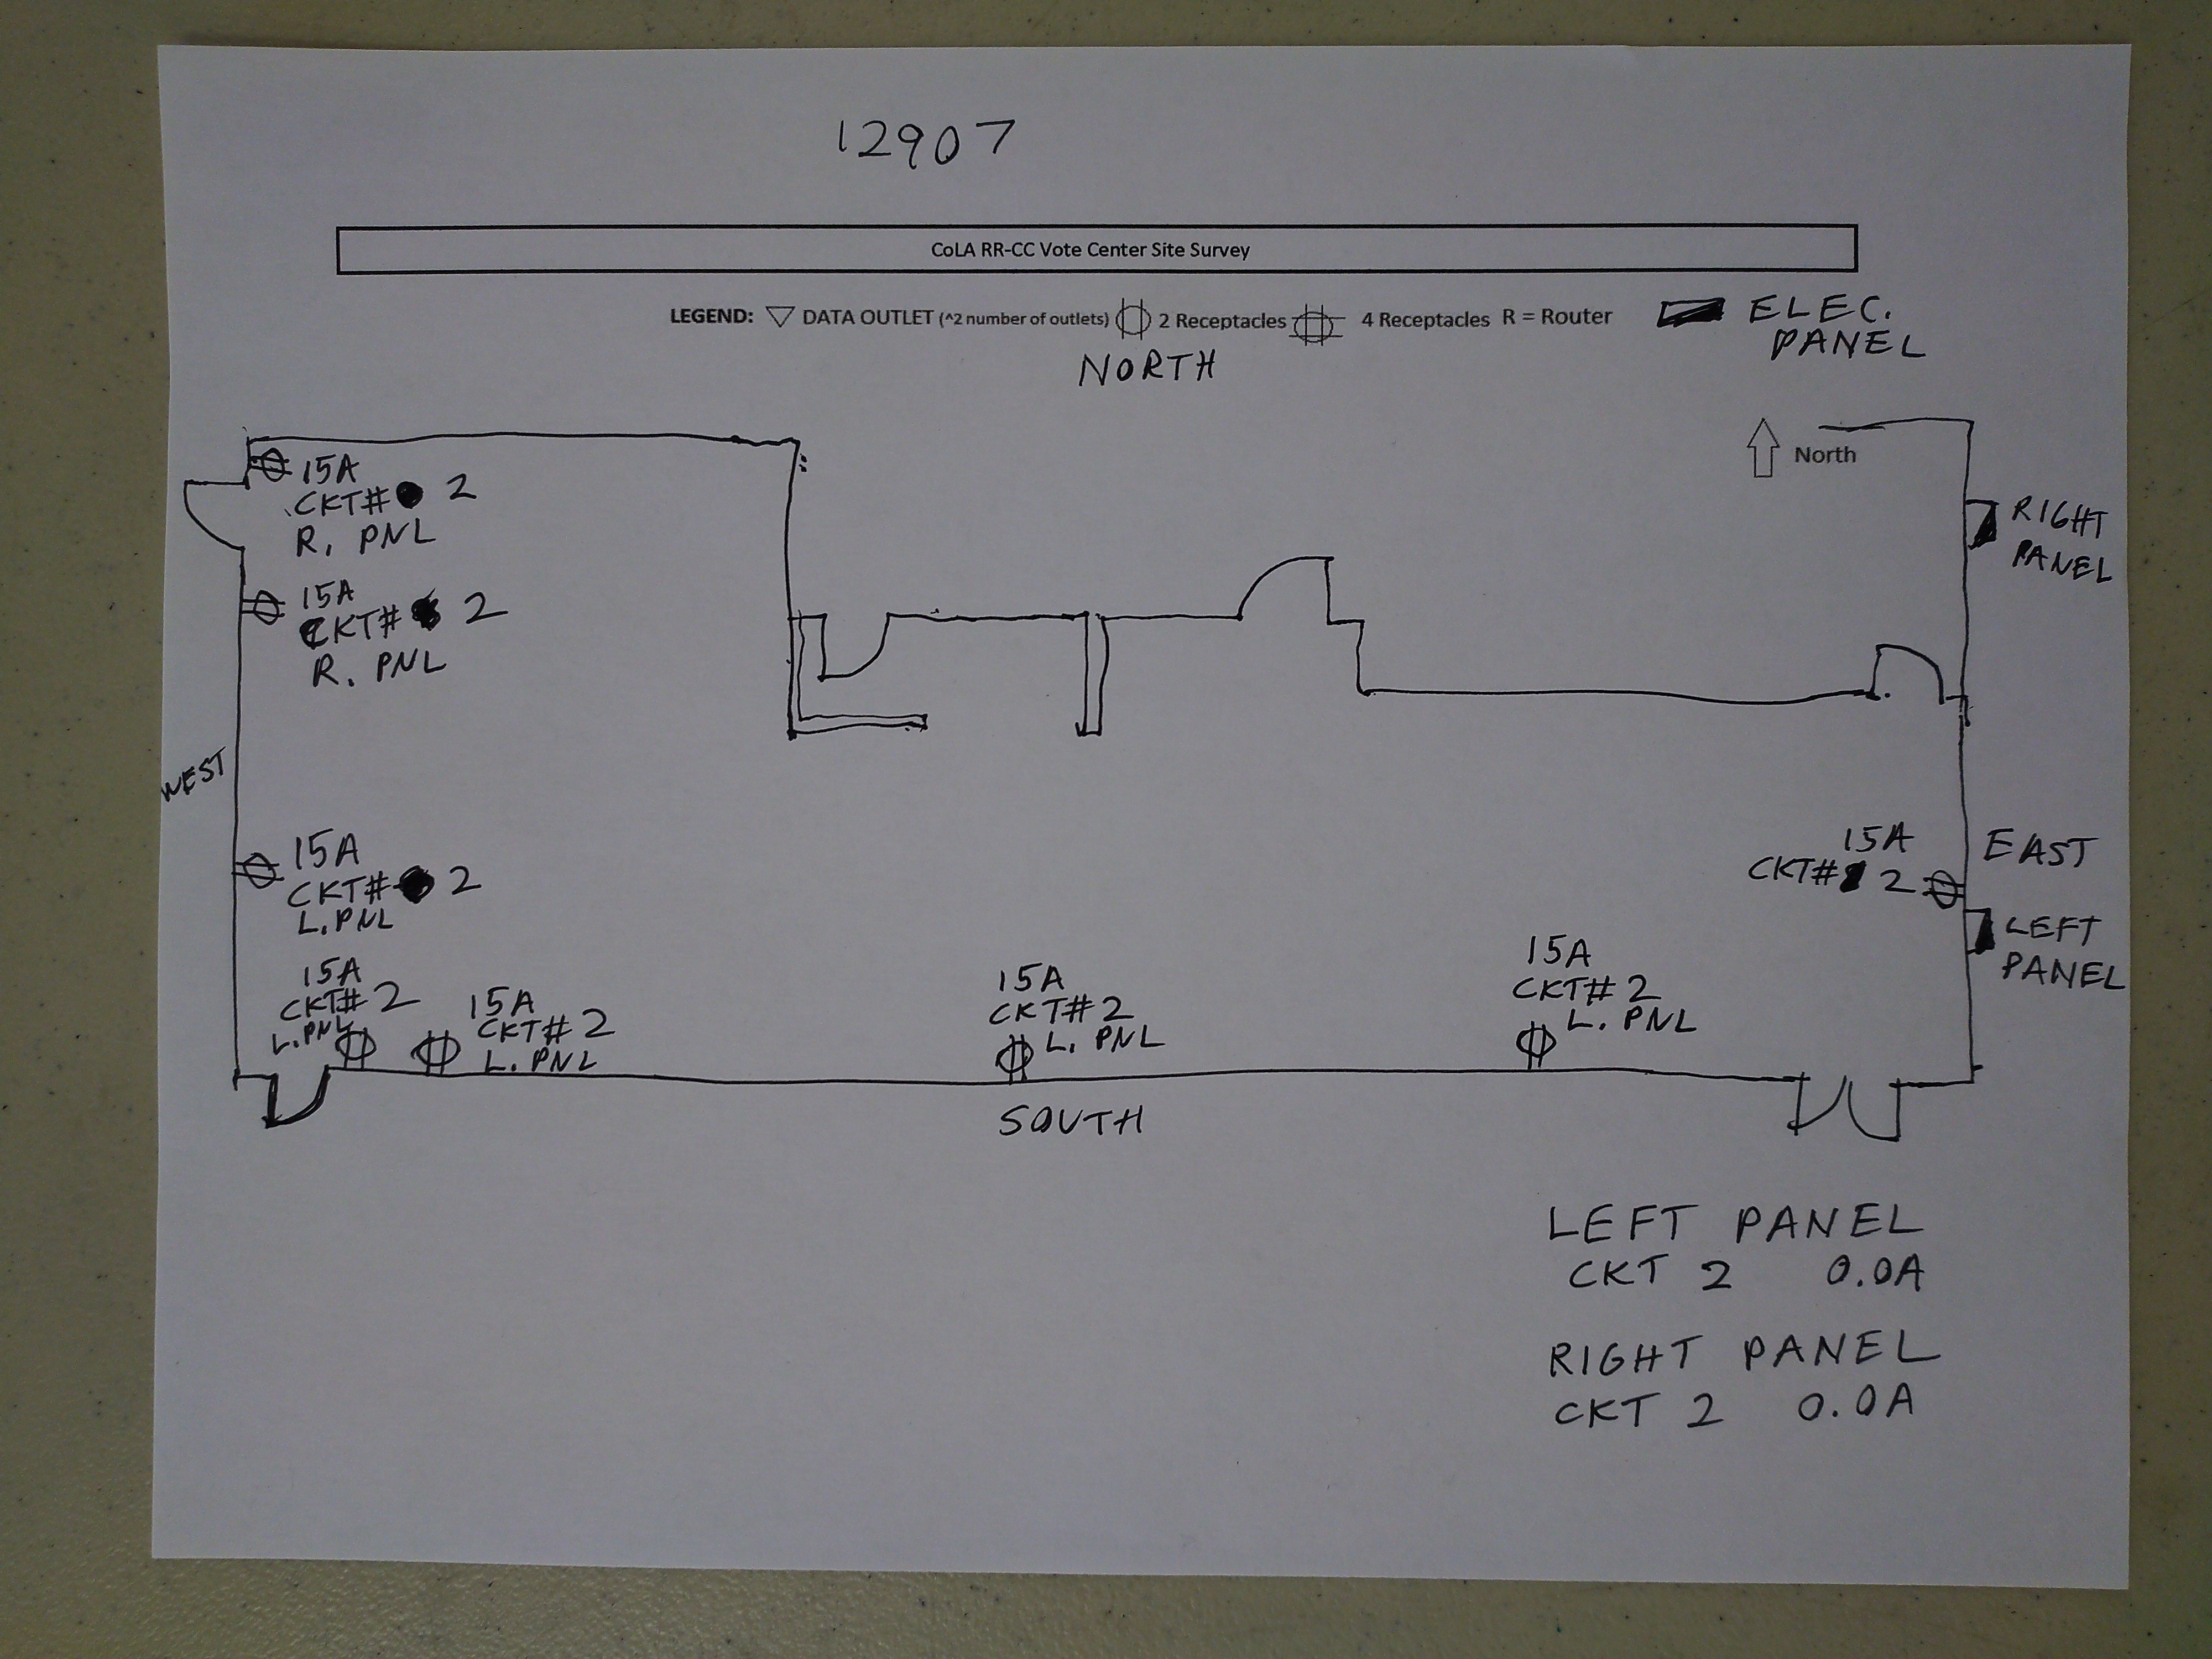 12907
CoLA RR-CC Vote Center Site Survey
LEGEND: DATA OUTLET (^2 number of outlets) 2 Receptacles 4 Receptacles R = Router ELEC.
PANEL
NORTH
North
15A
CKT# 2
R. PNL
RIGHT
PANEL
15A
CKT# 2
R. PNL
WEST
15A
CKT# 2
L. PNL
15A
CKT# 2
EAST
LEFT
PANEL
15A
CKT# 2
L. PNL
15A
CKT# 2
L. PNL
15A
CKT# 2
L. PNL
15A
CKT# 2
L. PNL
SOUTH
LEFT PANEL
CKT 2 0.0A
RIGHT PANEL
CKT 2 0.0A